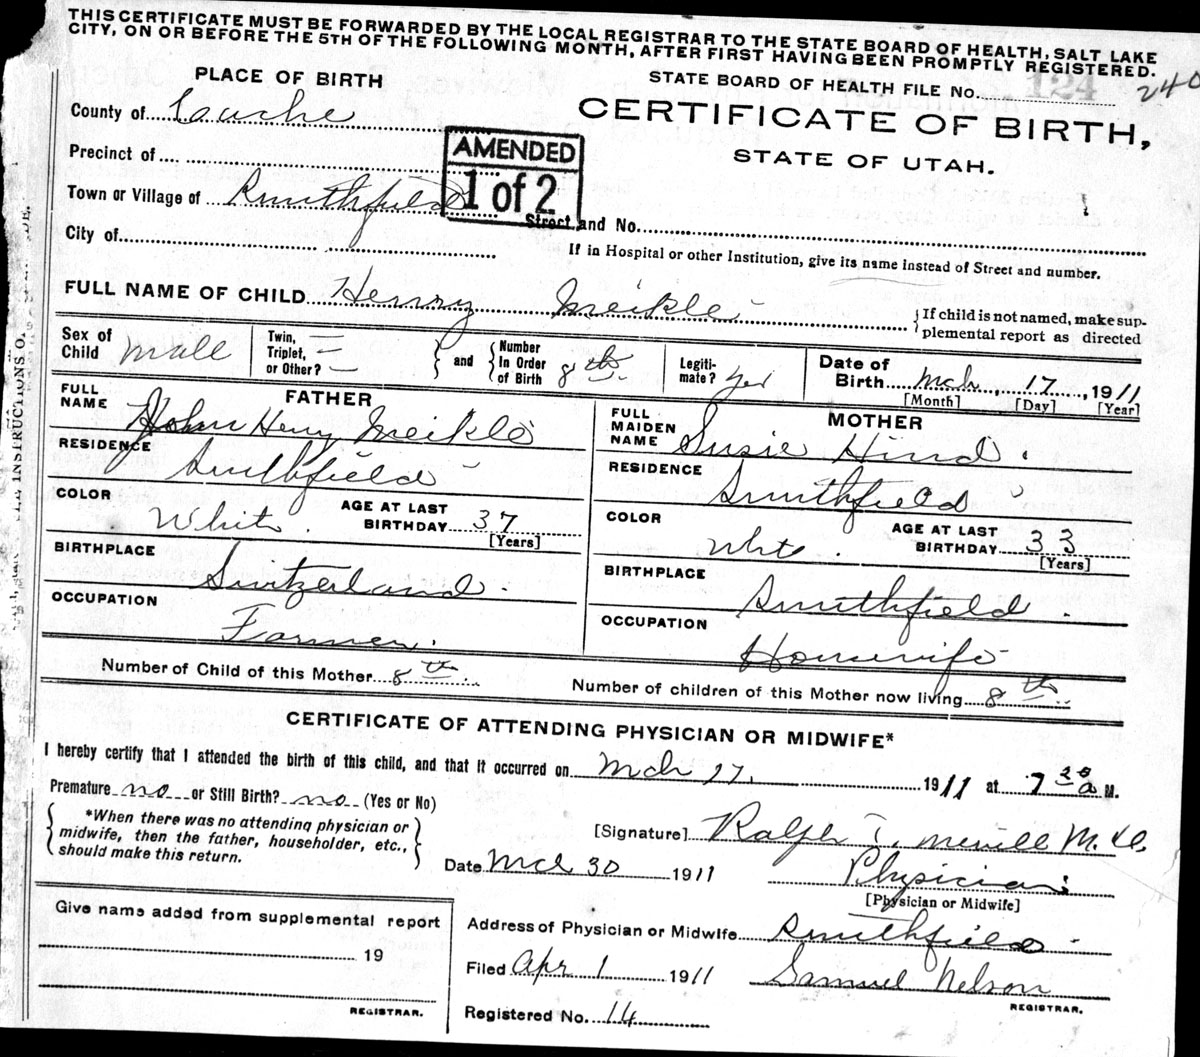 THIS CERTIFICATE MUST BE FORWARDED BY THE LOCAL REGISTRAR TO THE STATE BOARD OF HEALTH, SALT LAKE
CITY, ON OR BEFORE THE 5TH OF THE FOLLOWING MONTH, AFTER FIRST HAVING BEEN PROMPTLY REGISTERED.
PLACE OF BIRTH
STATE BOARD OF HEALTH FILE No. 124 240
County of Cache
CERTIFICATE OF BIRTH,
STATE OF UTAH.
AMENDED
1 of 2
Precinct of
Town or Village of Smithfield
Street and No.
City of
If in Hospital or other Institution, give its name instead of Street and number.
FULL NAME OF CHILD Henry Meikle
{If child is not named, make sup-
plemental report as directed
Sex of
Child male
Twin,
Triplet, —
or Other? —
} and {
Number
In Order
of Birth 8th
Legiti-
mate? yes
Date of
Birth Mch 17, 1911
[Month] [Day] [Year]
FATHER
FULL
NAME John Henry Meikle
RESIDENCE Smithfield
COLOR White
AGE AT LAST
BIRTHDAY 37
[Years]
BIRTHPLACE Switzerland
OCCUPATION Farmer
MOTHER
FULL
MAIDEN
NAME Susie Hind
RESIDENCE Smithfield
COLOR White
AGE AT LAST
BIRTHDAY 33
[Years]
BIRTHPLACE Smithfield
OCCUPATION Housewife
Number of Child of this Mother 8th
Number of children of this Mother now living 8th
CERTIFICATE OF ATTENDING PHYSICIAN OR MIDWIFE*
I hereby certify that I attended the birth of this child, and that it occurred on Mch 17, 1911 at 7 30 a M.
Premature no or Still Birth? no (Yes or No)
{*When there was no attending physician or
midwife, then the father, householder, etc.,
should make this return.}
[Signature] Ralph T. Merrill M.D.
Date Mch 30 1911
Physician
[Physician or Midwife]
Give name added from supplemental report
19
REGISTRAR.
Address of Physician or Midwife Smithfield
Filed Apr 1 1911
Samuel Nelson
REGISTRAR.
Registered No. 14